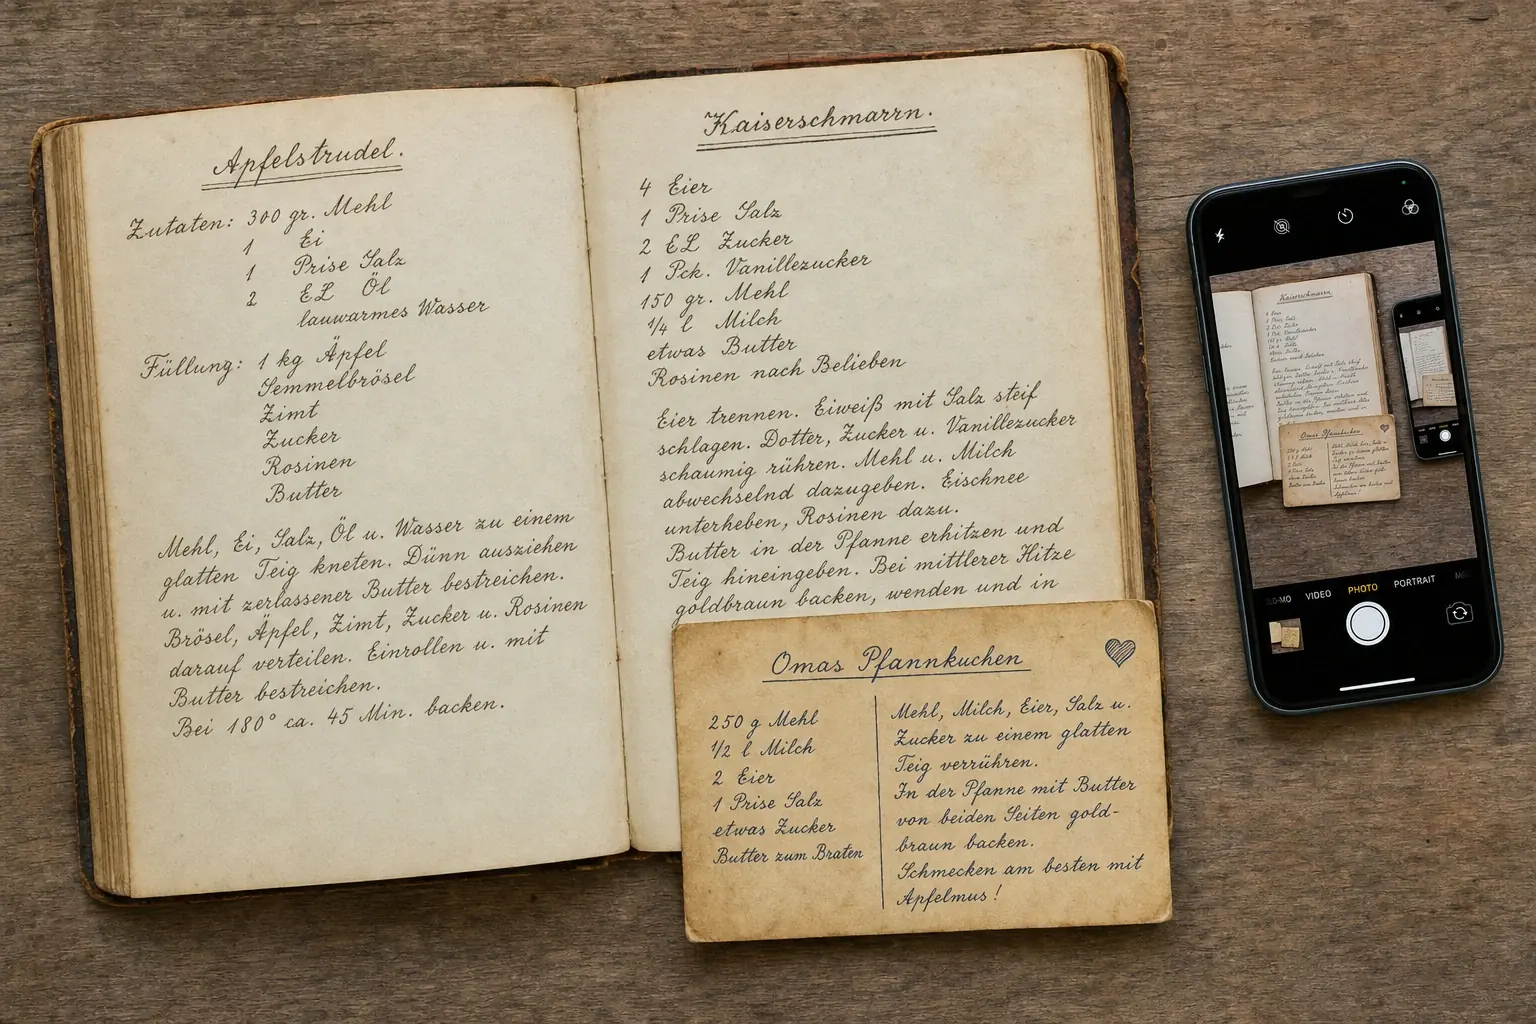 Apfelstrudel.
Zutaten: 300 gr. Mehl
1 Ei
1 Prise Salz
2 EL Öl
lauwarmes Wasser
Füllung: 1 kg Äpfel
Semmelbrösel
Zimt
Zucker
Rosinen
Butter
Mehl, Ei, Salz, Öl u. Wasser zu einem
glatten Teig kneten. Dünn ausziehen
u. mit zerlassener Butter bestreichen.
Brösel, Äpfel, Zimt, Zucker u. Rosinen
darauf verteilen. Einrollen u. mit
Butter bestreichen.
Bei 180° ca. 45 Min. backen.
Kaiserschmarrn.
4 Eier
1 Prise Salz
2 EL Zucker
1 Pck. Vanillezucker
150 gr. Mehl
1/4 l Milch
etwas Butter
Rosinen nach Belieben
Eier trennen. Eiweiß mit Salz steif
schlagen. Dotter, Zucker u. Vanillezucker
schaumig rühren. Mehl u. Milch
abwechselnd dazugeben. Eischnee
unterheben, Rosinen dazu.
Butter in der Pfanne erhitzen und
Teig hineingeben. Bei mittlerer Hitze
goldbraun backen, wenden und in
Omas Pfannkuchen
250 g Mehl
1/2 l Milch
2 Eier
1 Prise Salz
etwas Zucker
Butter zum Braten
Mehl, Milch, Eier, Salz u.
Zucker zu einem glatten
Teig verrühren.
In der Pfanne mit Butter
von beiden Seiten gold-
braun backen.
Schmecken am besten mit
Apfelmus!
Kaiserschmarrn
Omas Pfannkuchen
VIDEO PHOTO PORTRAIT